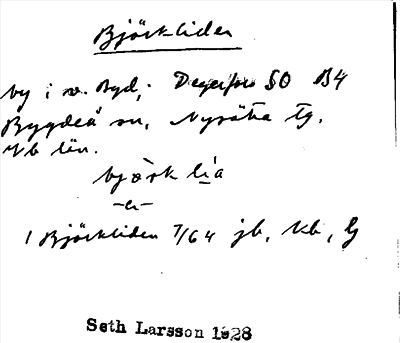 Björkliden
by i v. Bygd, Degerfors SO B4
Bygdeå sn, Nysätra tg,
Vb län.
björk lia
-a-
1 Björkliden 7/64 jb, kb, G
Seth Larsson 1928